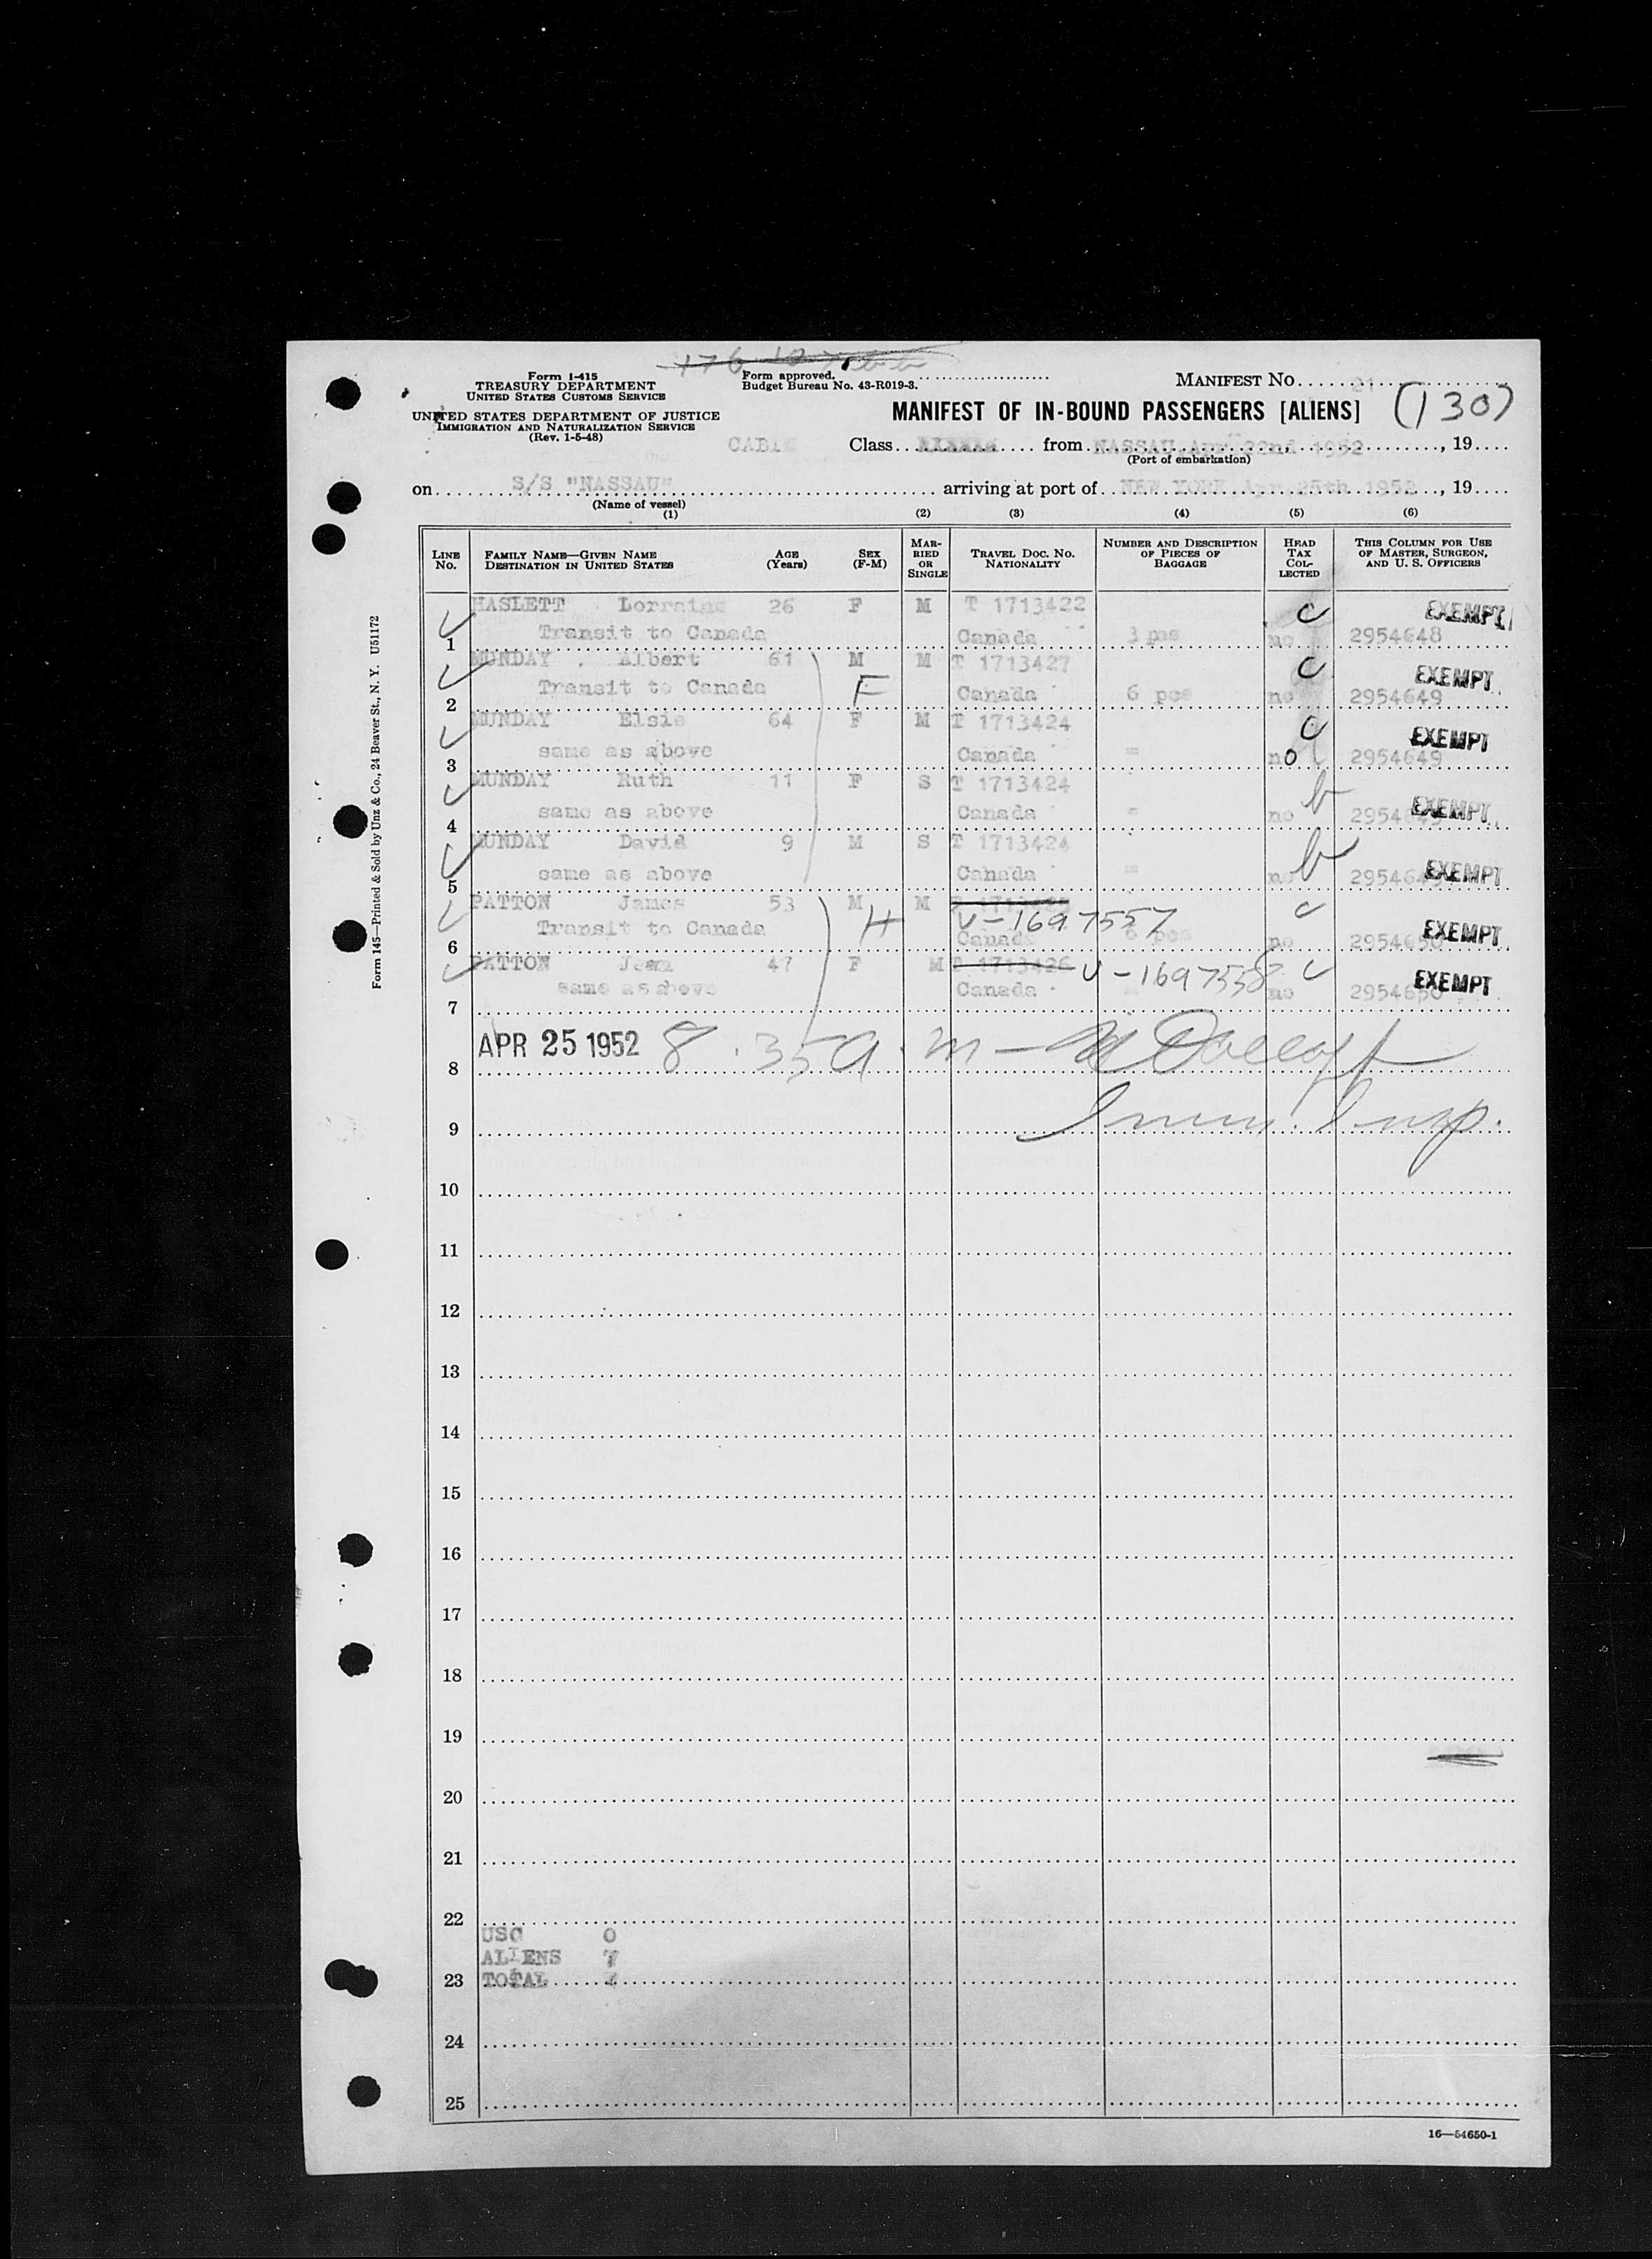 Form I-415
TREASURY DEPARTMENT
UNITED STATES CUSTOMS SERVICE
UNITED STATES DEPARTMENT OF JUSTICE
IMMIGRATION AND NATURALIZATION SERVICE
(Rev. 1-5-48)
Form approved.
Budget Bureau No. 43-R019-3.
MANIFEST NO. 21
(130)
MANIFEST OF IN-BOUND PASSENGERS [ALIENS]
CABIN Class from NASSAU, Apr 22nd 1952, 19
(Port of embarkation)
on S/S "NASSAU" arriving at port of NEW YORK Apr 25th 1952, 19
(Name of vessel)
(1) (2) (3) (4) (5) (6)
LINE NO. FAMILY NAME—GIVEN NAME DESTINATION IN UNITED STATES AGE (Years) SEX (F-M) MARRIED OR SINGLE TRAVEL DOC. NO. NATIONALITY NUMBER AND DESCRIPTION OF PIECES OF BAGGAGE HEAD TAX COLLECTED THIS COLUMN FOR USE OF MASTER, SURGEON, AND U. S. OFFICERS
HASLETT Lorraine 26 F M T 1713422 C EXEMPT
1 Transit to Canada Canada 3 pcs no 2954648
MUNDAY Albert 61 M M T 1713427 C EXEMPT
2 Transit to Canada F Canada 6 pcs no 2954649
MUNDAY Elsie 64 F M T 1713424 C EXEMPT
3 same as above Canada = no 2954649
MUNDAY Ruth 11 F S T 1713424 b EXEMPT
4 same as above Canada = no 2954649
MUNDAY David 9 M S T 1713424 b EXEMPT
5 same as above Canada = no 2954649
PATTON James 53 M M V-1697557 C EXEMPT
6 Transit to Canada H Canada 6 pcs no 2954650
PATTON Jean 47 F M T 1713426 V-1697558 C EXEMPT
7 same as above Canada = no 2954650
8 APR 25 1952 8.35 a.m —
9 Imm. Insp.
10
11
12
13
14
15
16
17
18
19
20
21
22
USC 0
ALIENS 7
23 TOTAL 7
24
25
16—54650-1
Form 145—Printed & Sold by Unz & Co., 24 Beaver St., N. Y. U51172